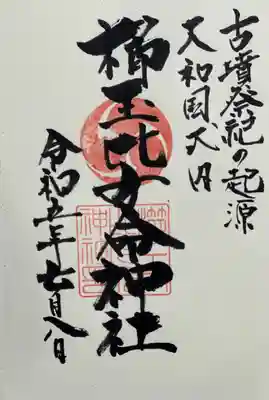 古墳祭祀の起源
大和国
櫛玉比女命神社
令和五年七月八日